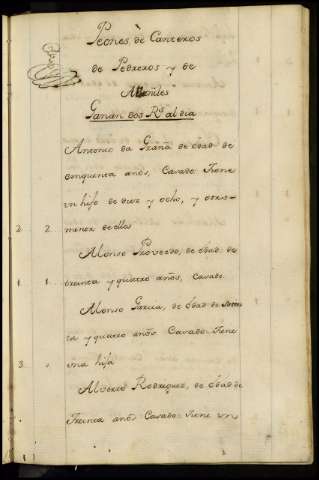 Peones de Canteros
de Pedreros y de
Albañiles
Ganan dos R.s al dia
Antonio da Graña de edad de
Cinquenta años, Casado: Tiene
un hijo de diez y ocho, y otros
2 2 menor de ellos
Alonso de edad de
1 1 treinta y quatro años, Casado.
Alonso Garcia, de edad de
ta y quatro años Casado: Tiene
3 una hija
Alverto Rodriguez, de edad de
Treinta años Casado: Tiene un